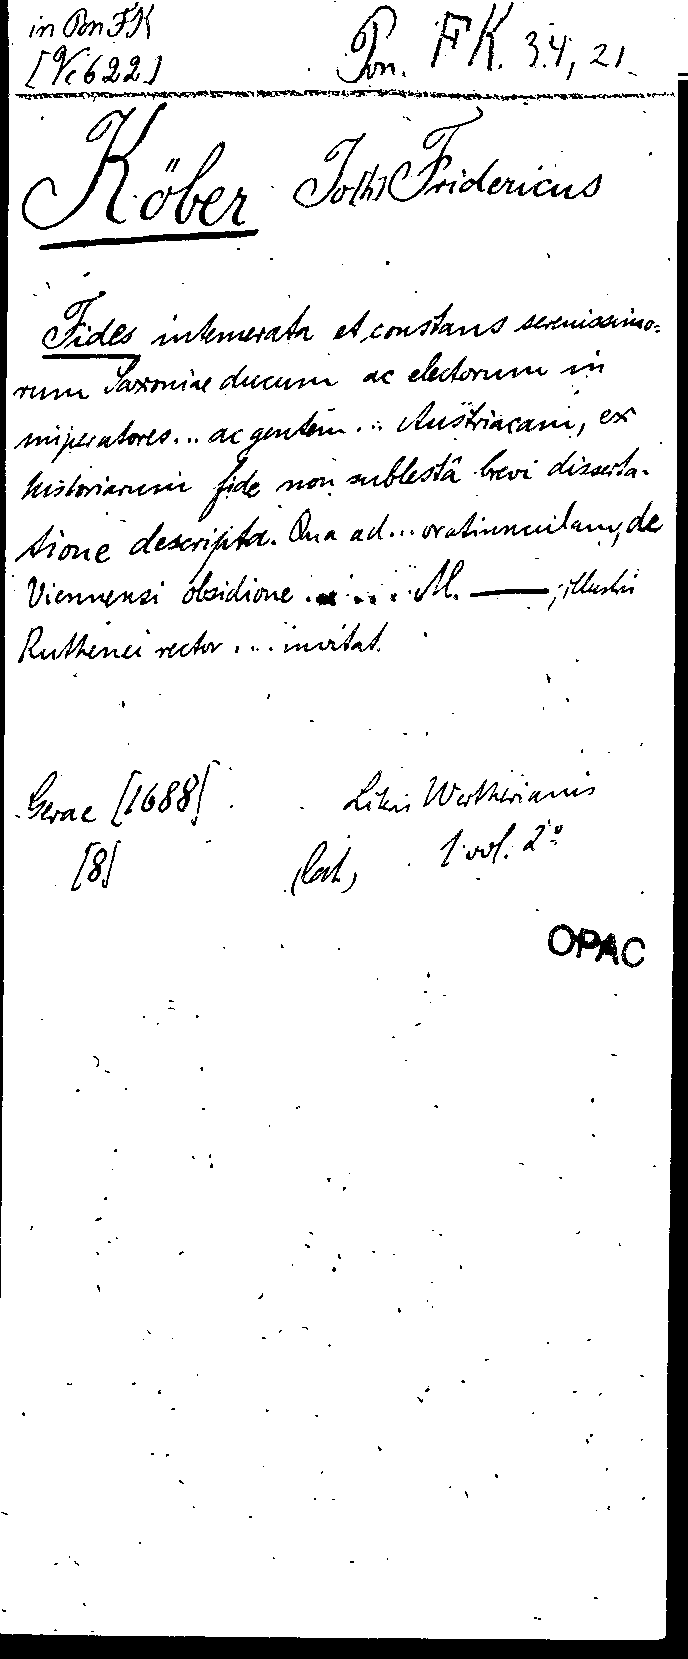 in Pon FK
Pon. FK. 3.4, 21.
[Vc 622]
Köber Jo(h) Fridericus
Fides intemerata et constans serenissimo-
rum Saxoniae ducum ac electorum in
imperatores... ac gentem... Austriacam, ex
historiarum fide non sublestâ brevi disserta-
tione descripta. Qua ad... oratiunculam, de
Viennensi obsidione ..... M. —; illustris
Ruthenei rector ... invitat.
Gerae [1688] Literis Wertherianis
[8] (lat) 1 vol. 2°
OPAC